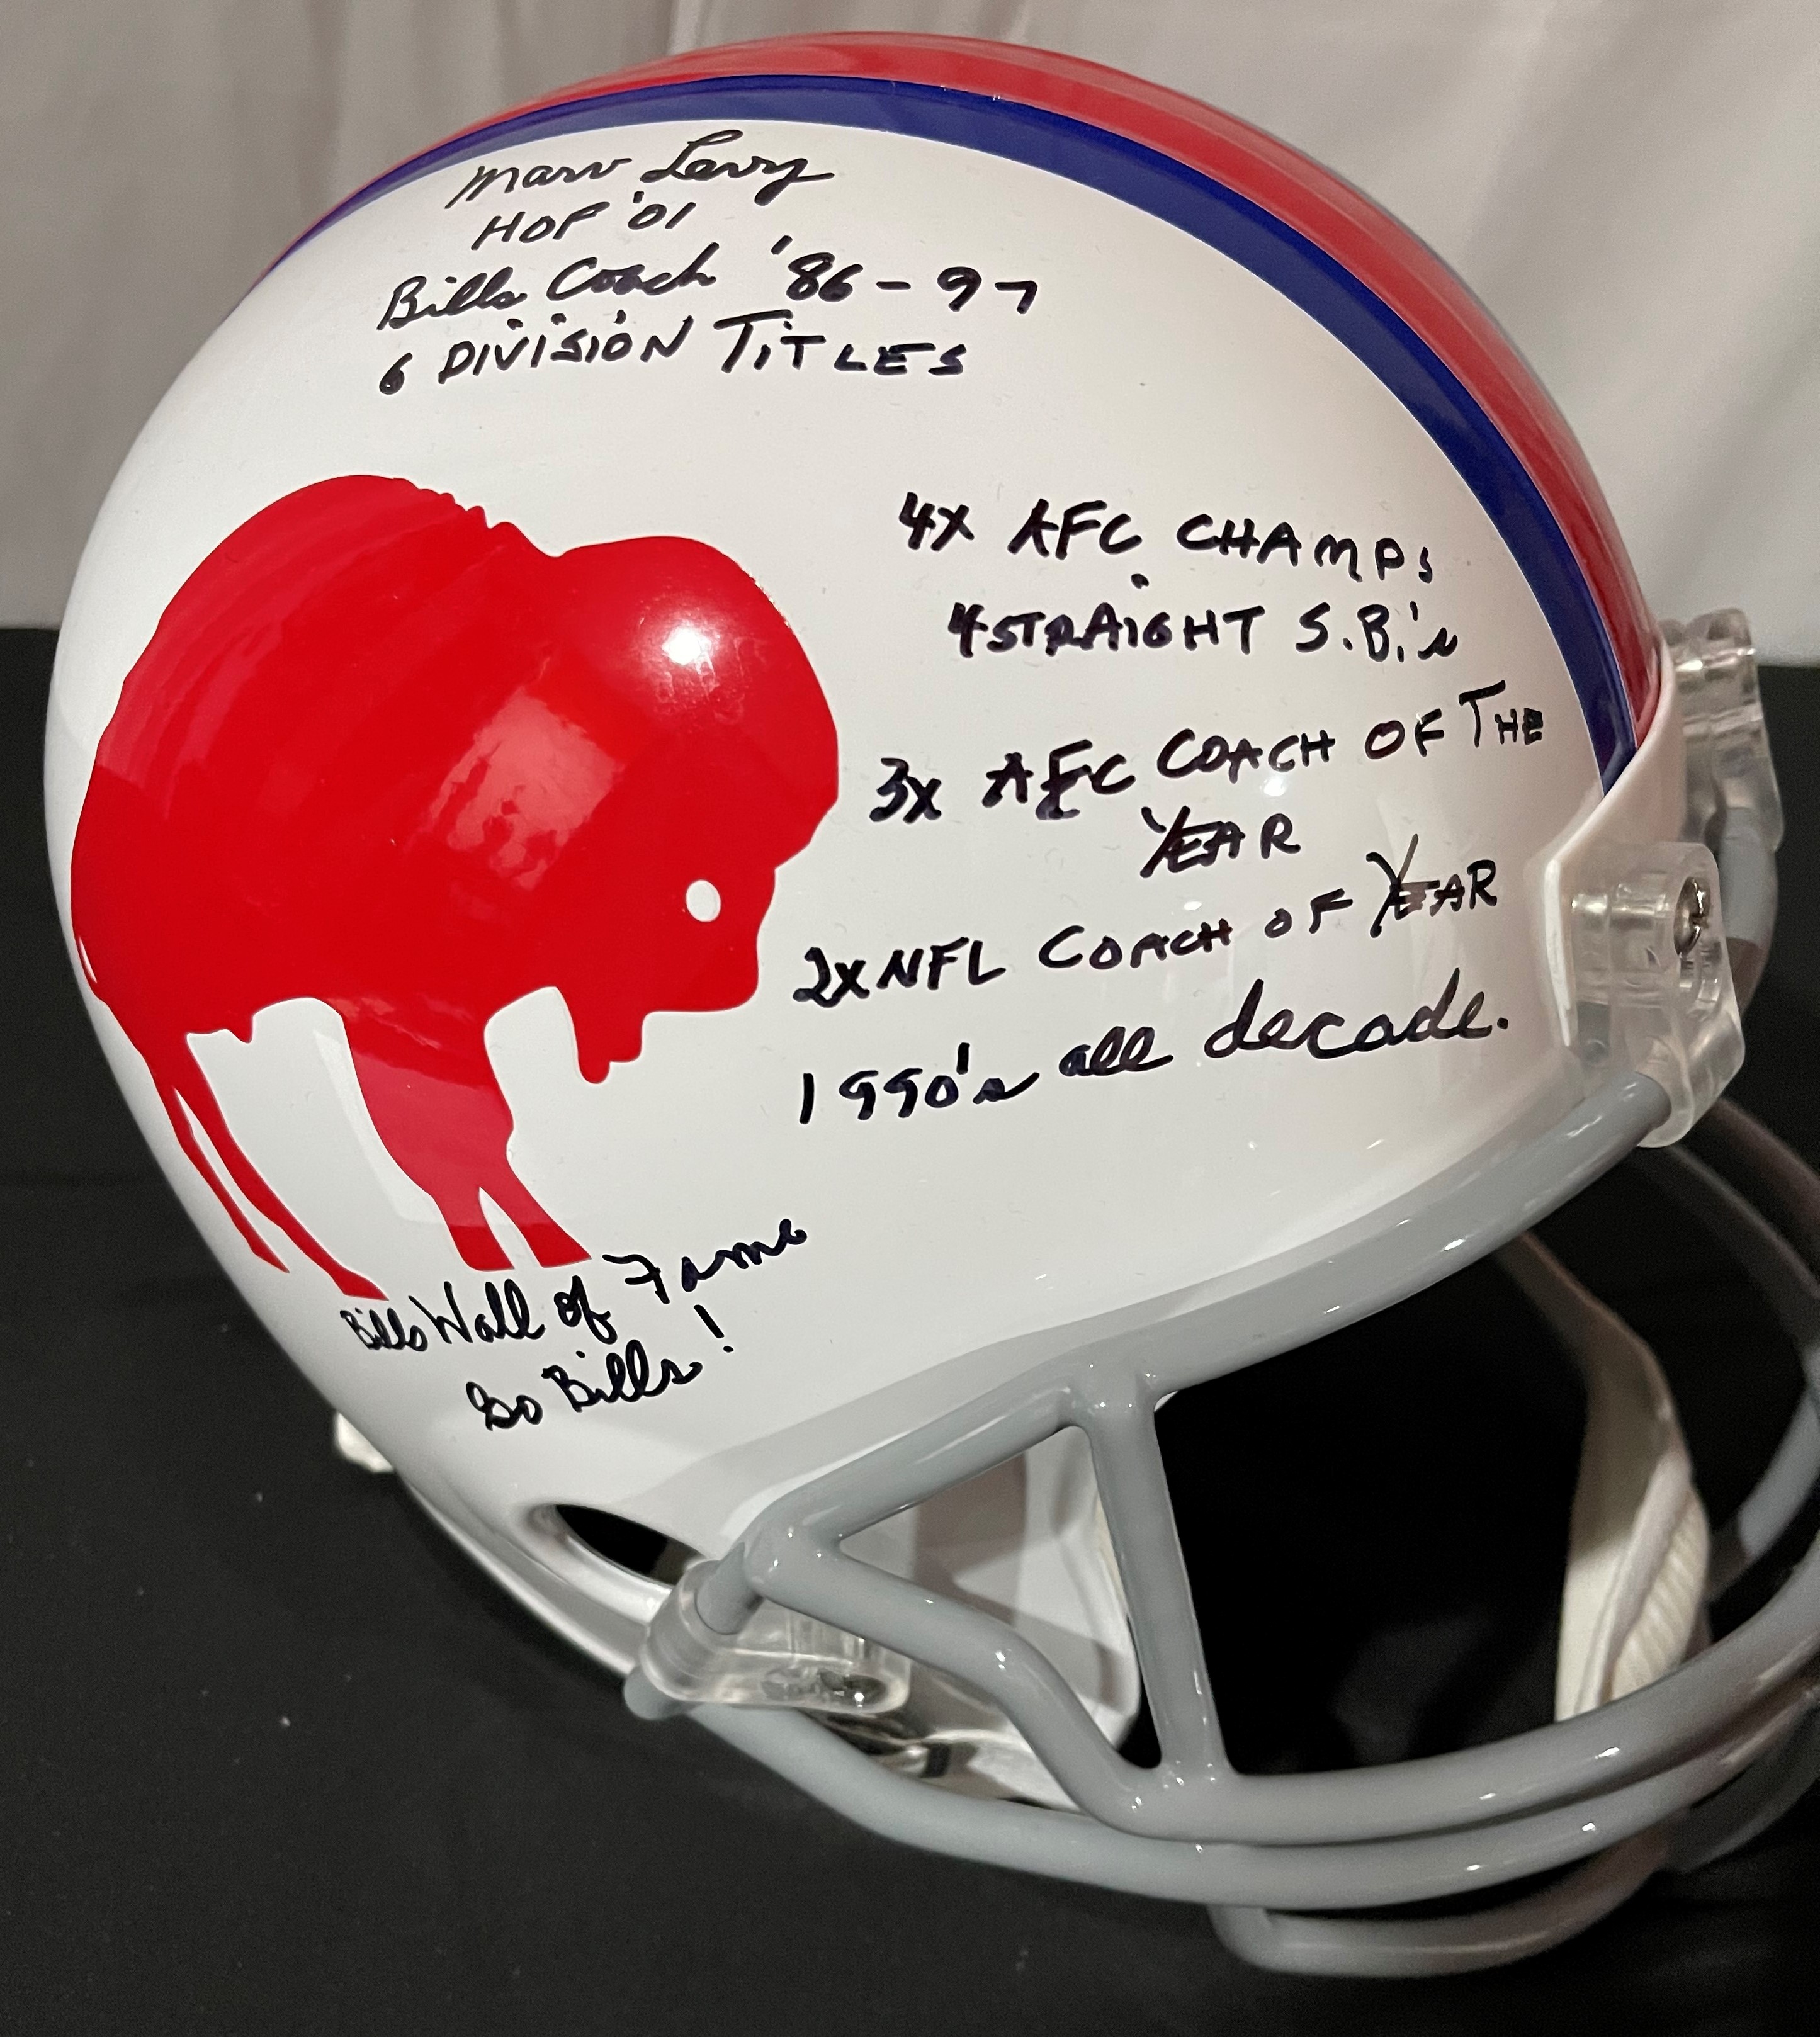 Marv Levy
HOF '01
Bills Coach '86-97
6 DIVISION TITLES
4X AFC CHAMPS
4 STRAIGHT S.B.'s
3X AFC COACH OF THE
YEAR
2X NFL COACH OF YEAR
1990's all decade.
Bills Wall of Fame
Go Bills!